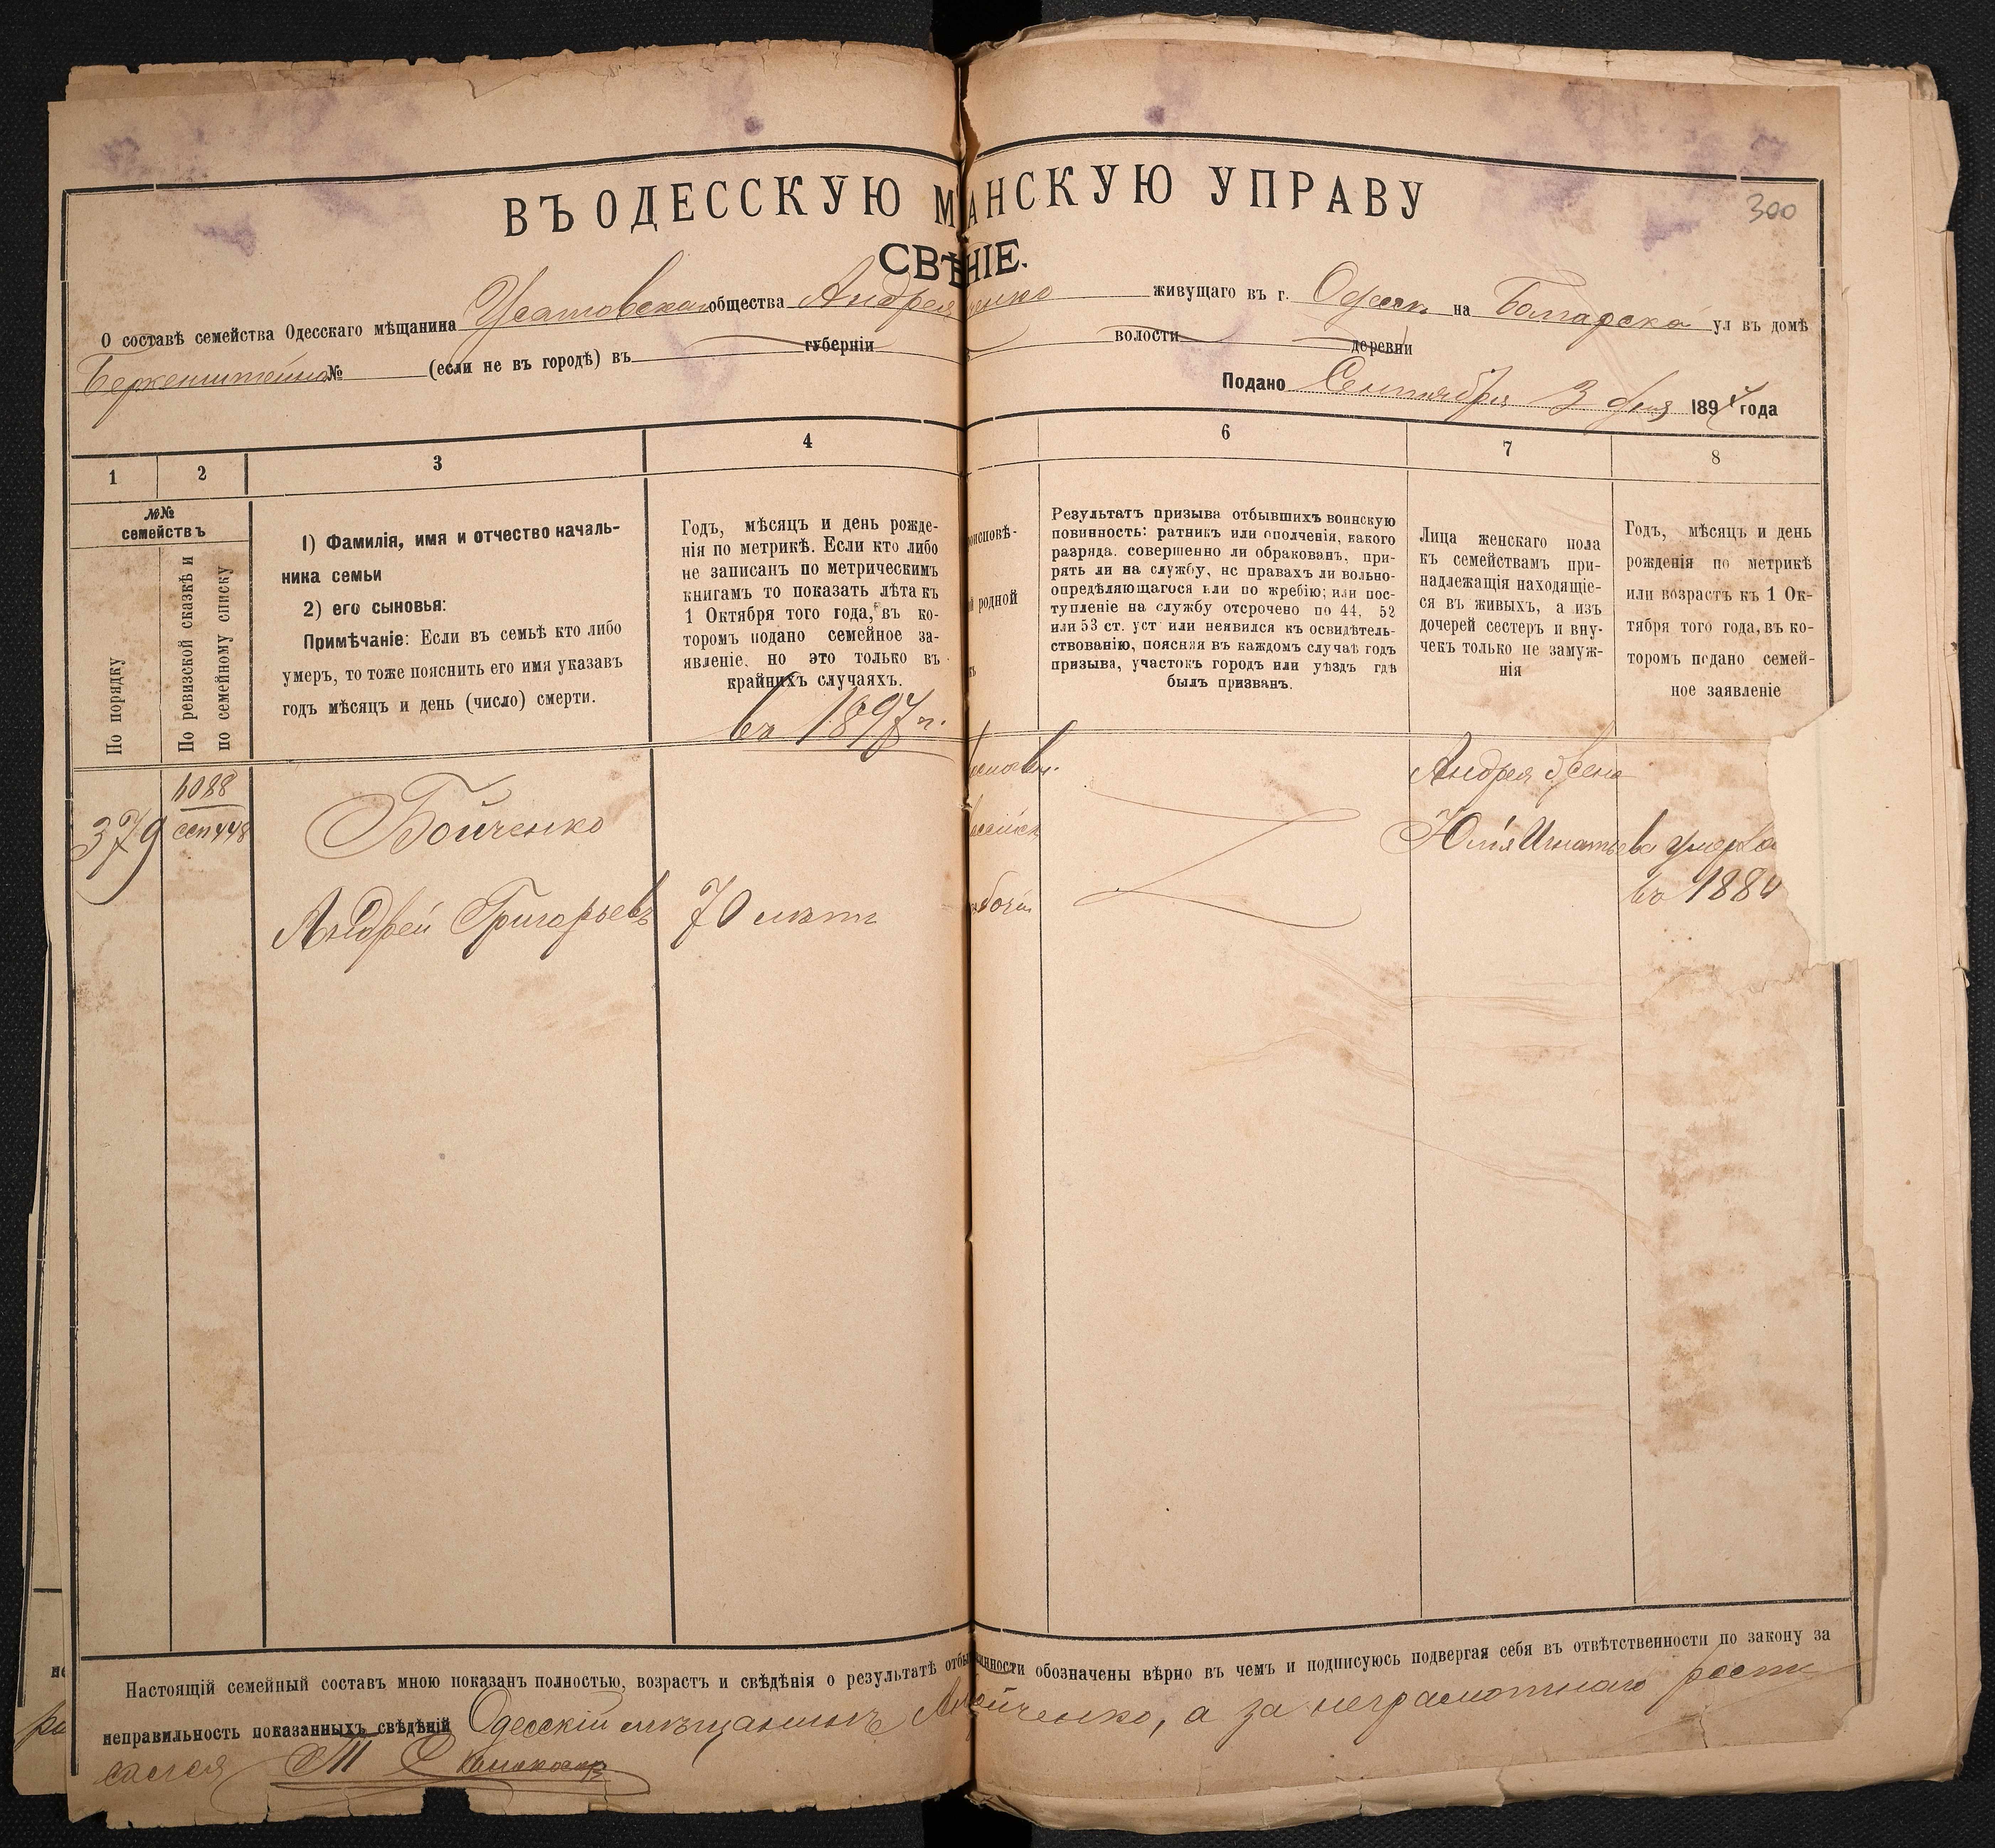 300
ВЪ ОДЕССКУЮ М АНСКУЮ УПРАВУ
СВѢ НІЕ.
О составѣ семейства Одесскаго мѣщанина Усатовскаго общества Андрея енко живущаго въ г. Одессѣ на Болгарско ул въ домѣ
№ (если не въ городѣ) въ губерніи волости деревни
Подано Сентября 3 дня 189 года
1 2 3 4 6 7 8
№№ семействъ
По порядку
По ревизской сказкѣ и по семейному списку
1) Фамилія, имя и отчество началь-
ника семьи
2) его сыновья:
Примѣчаніе: Если въ семьѣ кто либо
умеръ, то тоже пояснить его имя указавъ
годъ мѣсяцъ и день (число) смерти.
Годъ, мѣсяцъ и день рожде-
нія по метрикѣ. Если кто либо
не записанъ по метрическимъ
книгамъ то показать лѣта къ
1 Октября того года, въ ко-
торомъ подано семейное за-
явленіе, но это только въ
крайнихъ случаяхъ.
въ 1897 г.
оисповѣ-
й родной
Результатъ призыва отбывшихъ воинскую
повинность: ратникъ или ополченія, какого
разряда. совершенно ли обракованъ, при-
рять ли на службу, нс правахъ ли вольно-
опредѣляющагося или по жребію; или пос-
тупленіе на службу отсрочено по 44, 52
или 53 ст. уст или неявился къ освидѣтель-
ствованію, поясняя въ каждомъ случаѣ годъ
призыва, участокъ городъ или уѣздъ гдѣ
былъ призванъ.
Лица женскаго пола
къ семействамъ при-
надлежащія находящіе-
ся въ живыхъ, а изъ
дочерей сестеръ и вну-
чекъ только не замуж-
нія
Годъ, мѣсяцъ и день
рожденія по метрикѣ
или возрастъ къ 1 Ок-
тября того года, въ ко-
торомъ подано семей-
ное заявленіе
379
Бойченко
Андрей Григорьевъ 70 лѣтъ
Андрея жена
Юлія Игнатьева умерла
въ 188
Настоящій семейный составъ мною показанъ полностью, возрастъ и свѣдѣнія о результатѣ отбы инности обозначены вѣрно въ чемъ и подписуюсь подвергая себя въ отвѣтственности по закону за
неправильность показанныхъ свѣдѣній Одесскій мѣщанинъ А ойченко, а за неграмотнаго росп
сался